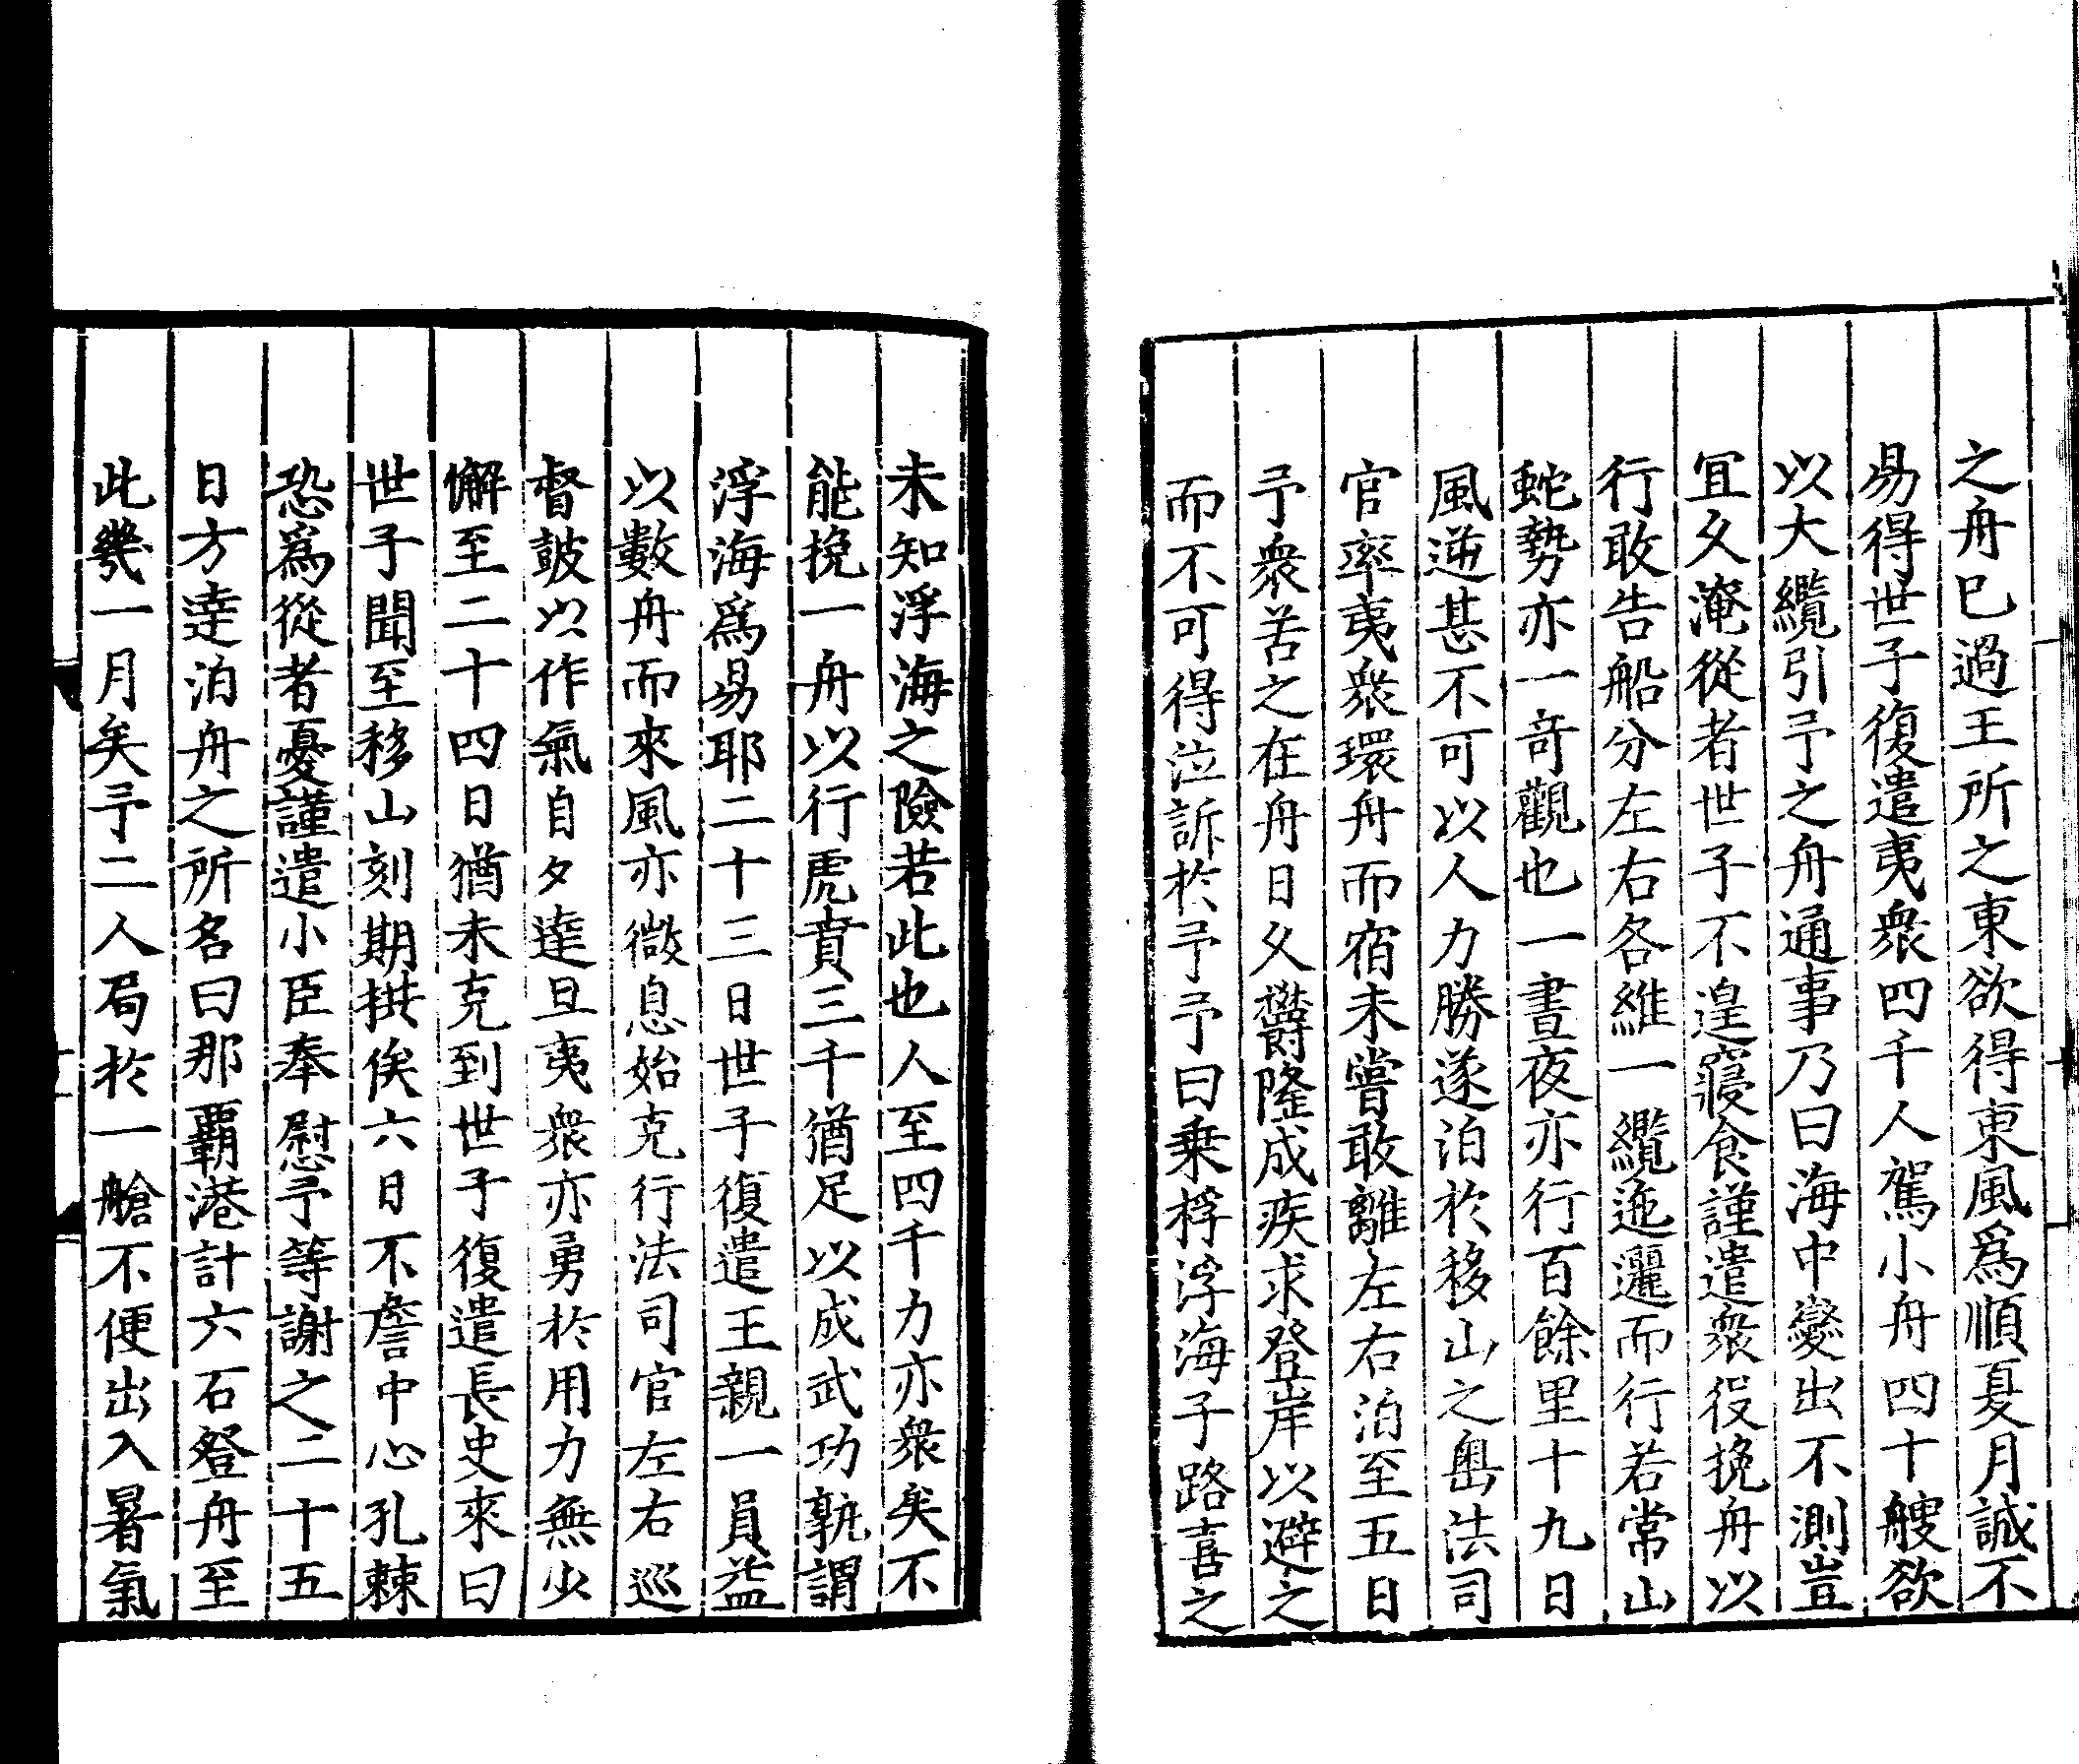 之舟已過王所之東欲得東風爲順夏月誠不
易得世子復遣夷衆四千人駕小舟四十艘欲
以大纜引予之舟通事乃曰海中變出不測豈
冝乆淹從者世子不遑寢食謹遣衆役挽舟以
行敢告船分左右各維一纜迤邐而行若常山
蛇勢亦一竒觀也一晝夜亦行百餘里十九日
風逆甚不可以人力勝遂泊於移山之嶴法司
官率夷衆環舟而宿未嘗敢離左右泊至五日
予衆苦之在舟日乆欝隆成疾求登岸以避之
而不可得泣訴於予予曰乗桴浮海子路喜之
未知浮海之險若此也人至四千力亦衆矣不
能挽一舟以行虎賁三千猶足以成武功孰謂
浮海爲易耶二十三日世子復遣王親一員益
以數舟而來風亦微息始克行法司官左右巡
督鼓以作氣自夕達旦夷衆亦勇於用力無少
懈至二十四日猶未克到世子復遣長史來曰
世子聞至移山刻期拱俟六日不詹中心孔棘
恐爲從者憂謹遣小臣奉慰予等謝之二十五
日方逹泊舟之所名曰那覇港計六石登舟至
此幾一月矣予二人局於一艙不便出入暑氣